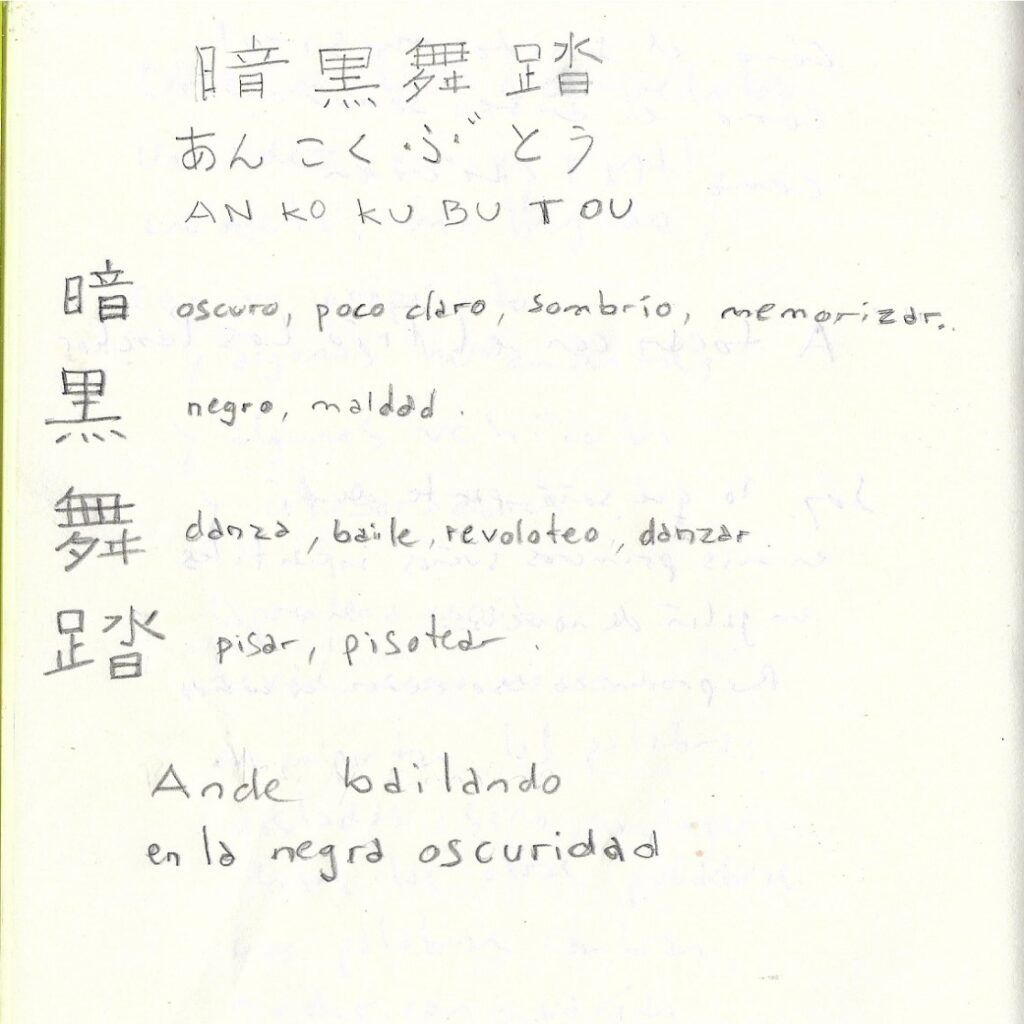 暗黒舞踏
あんこくぶとう
AN KO KU BU TOU
暗 oscuro, poco claro, sombrío, memorizar.
黒 negro, maldad.
舞 danza, baile, revoloteo, danzar
踏 pisar, pisotear.
Ande bailando
en la negra oscuridad